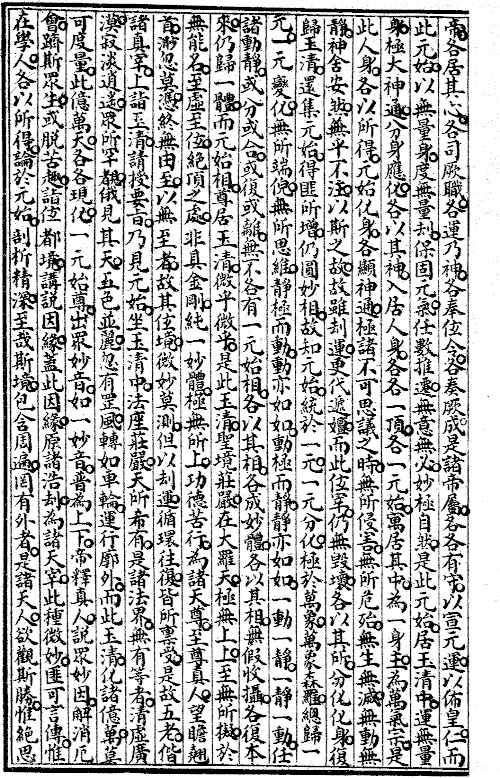 帝各居其心各司厥職各運乃神各奉位令各奏厥成是諸帝屬各各有宰以宣元運以佈皇仁而
此元始以無量身度無量刦保固元氣任數推遷無意無必妙極自然是此元始居玉清中運無量
身極大神通分身應化各以其神入居人身各各一頂各一元始寓居其中為一身主為萬氣宗是
此人身各以所得元始化身各顯神通極諸不可思議之時無所侵害無所危殆無生無滅無動無
靜神舍安然無乎不注以斯之故故雖刦運更代遞嬗而此位宰仍無毀壞各以其所分化化身復
歸玉清還集元始得匪所增仍圓妙相故知元始統於一元一元分化極於萬象萬象森羅總歸一
元一元變化無所端倪無所思維靜極而動動亦如如動極而靜靜亦如如一動一靜一靜一動任
諸動靜或分或合或復或離無不各有一元始相各以其相各成妙體各以其相無假收攝各復本
來仍歸一體而元始相尊居玉清微乎微乎是此玉清聖境莊嚴在大羅天極無上上至無所擬於
無能名至虛至位絕頂之處非真金剛純一妙體極無所上功德苦行為諸天尊至尊真人望瞻翹
首渺忽莫憑終無由至以無至者故其位境微妙莫測但以刦運循環往復皆所稟受是故五老偕
諸真宰上詣玉清請授要旨乃見元始坐玉清中法座莊嚴天所希有是諸法界無有等者清虛廣
漠寂淡逍遙眾所罕覩俄見其天五色並麗忽有罡風轉如車輪運行廓外而此玉清化諸億萬莫
可度量此億萬天各各現化一元始尊出眾妙音如一妙音普為上下帝釋真人說眾妙因解消厄
會躋斯眾生或脫苦趣詣位都壇講說因緣蓋此因緣原諸浩刦為諸大宰此種微妙匪可言傳惟
在學人各以所得論於元始剖析精深至哉斯境包含周遍罔有外者是諸天人欲觀斯勝惟絕思